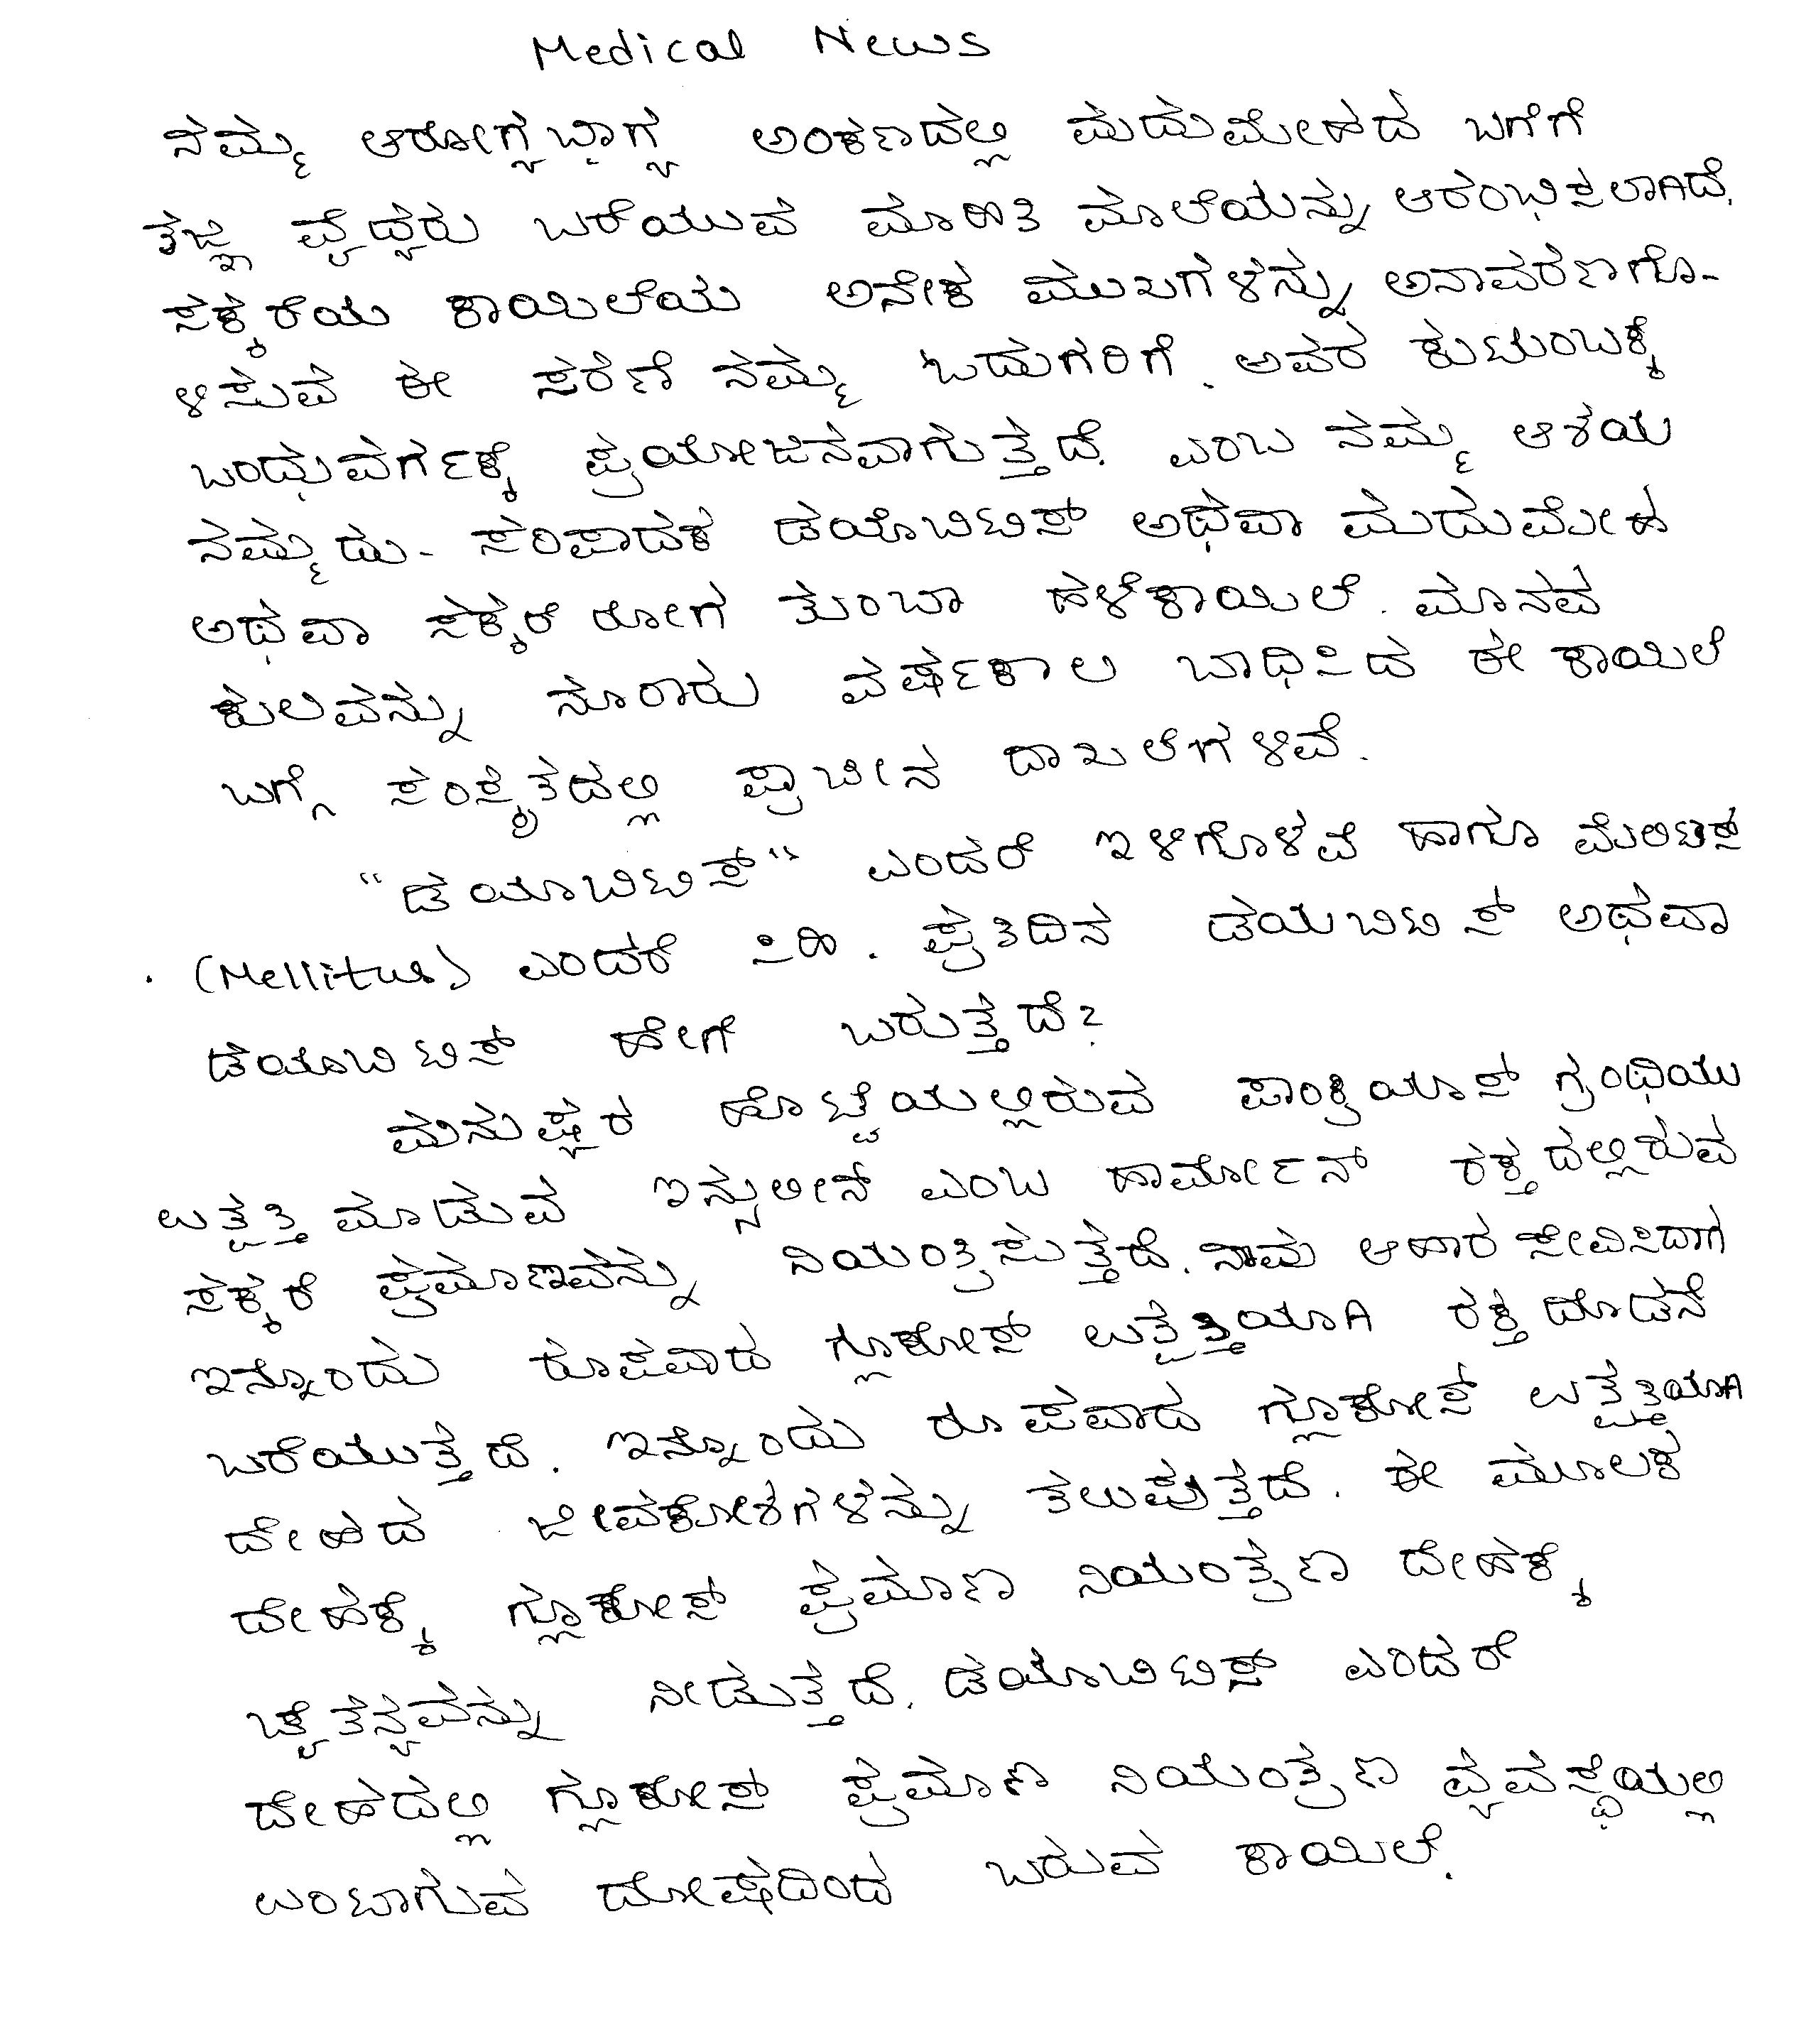 Medical News
ನಮ್ಮ ಆರೋಗ್ಯಭಾಗ್ಯ ಅಂಕಣದಲ್ಲಿ ಮದುಮೇಹದ ಬಗೆಗೆ
ತಜ್ಞ ವೈದ್ಯರು ಬರೆಯುವ ಮಾಹಿತಿ ಮಾಲೆಯನ್ನು ಆರಂಭಿಸಲಾಗಿದೆ.
ಸಕ್ಕರೆಯ ಕಾಯಿಲೆಯ ಅನೇಕ ಮುಖಗಳನ್ನು ಅನಾವರಣಗೊ-
ಳಿಸುವ ಈ ಸರಣಿ ನಮ್ಮ ಓದುಗರಿಗೆ. ಅವರ ಕುಟುಂಬಕ್ಕೆ
ಬಂಧುವರ್ಗಕ್ಕೆ ಪ್ರಯೋಜನವಾಗುತ್ತದೆ. ಎಂಬ ನಮ್ಮ ಆಶಯ
ನಮ್ಮದು- ಸಂಪಾದಕ ಡಯೊಬಿಟಿಸ್ ಅಥವಾ ಮದುಮೇಹ
ಅಥವಾ ಸಕ್ಕರೆ ರೋಗ ತುಂಬಾ ಹಳೆಕಾಯಿಲೆ. ಮಾನವ
ಕುಲವನ್ನು ನೂರಾರು ವರ್ಷಕಾಲ ಬಾಧಿಸಿದ ಈ ಕಾಯಿಲೆ
ಬಗ್ಗೆ ಸಂಸ್ಕೃತದಲ್ಲಿ ಪ್ರಾಚೀನ ದಾಖಲೆಗಳಿವೆ.
"ಡಯಾಬಿಟಿಸ್" ಎಂದರೆ ಇಳಿಗೊಳವೆ ಹಾಗೂ ಮೆಲಿಟಸ್
. (Mellitus) ಎಂದರೆ ಸಿಹಿ. ಪ್ರತಿದಿನ ಡಯಬಿಟಿಸ್ ಅಥವಾ
ಡಯಾಬಿಟಿಸ್ ಹೇಗೆ ಬರುತ್ತದೆ?
ಮನುಷ್ಯರ ಹೊಟ್ಟೆಯಲ್ಲಿರುವ ಪಾಂಕ್ರಿಯಾಸ್ ಗ್ರಂಥಿಯು
ಉತ್ಪತ್ತಿ ಮಾಡುವ ಇನ್ಸುಲೀನ್ ಎಂಬ ಹಾರ್ಮೋನ್ ರಕ್ತದಲ್ಲಿರುವ
ಸಕ್ಕರೆ ಪ್ರಮಾಣವನ್ನು ನಿಯಂತ್ರಿಸುತ್ತದೆ. ನಾವು ಆಹಾರ ಸೇವಿಸಿದಾಗ
ಇನ್ನೊಂದು ರೂಪವಾದ ಗ್ಲೂಕೋಸ್ ಉತ್ಪತ್ತಿಯಾಗಿ ರಕ್ತದೊಡನೆ
ಬರೆಯುತ್ತದೆ. ಇನ್ನೊಂದು ರೂಪವಾದ ಗ್ಲೂಕೋಸ್ ಉತ್ಪತ್ತಿಯಾಗಿ
ದೇಹದ ಜೀವಕೋಶಗಳನ್ನು ತಲುಪುತ್ತದೆ. ಈ ಮೂಲಕ
ದೇಹಕ್ಕೆ ಗ್ಲೂಕೋಸ್ ಪ್ರಮಾಣ ನಿಯಂತ್ರಣ ದೇಹಕ್ಕೆ
ಚೈತನ್ಯವನ್ನು ನೀಡುತ್ತದೆ. ಡಯಾಬಿಟಿಸ್ ಎಂದರೆ
ದೇಹದಲ್ಲಿ ಗ್ಲೂಕೋಸ್ ಪ್ರಮಾಣ ನಿಯಂತ್ರಣ ವ್ಯವಸ್ಥೆಯಲ್ಲಿ
ಉಂಟಾಗುವ ದೋಷದಿಂದ ಬರುವ ಕಾಯಿಲೆ.